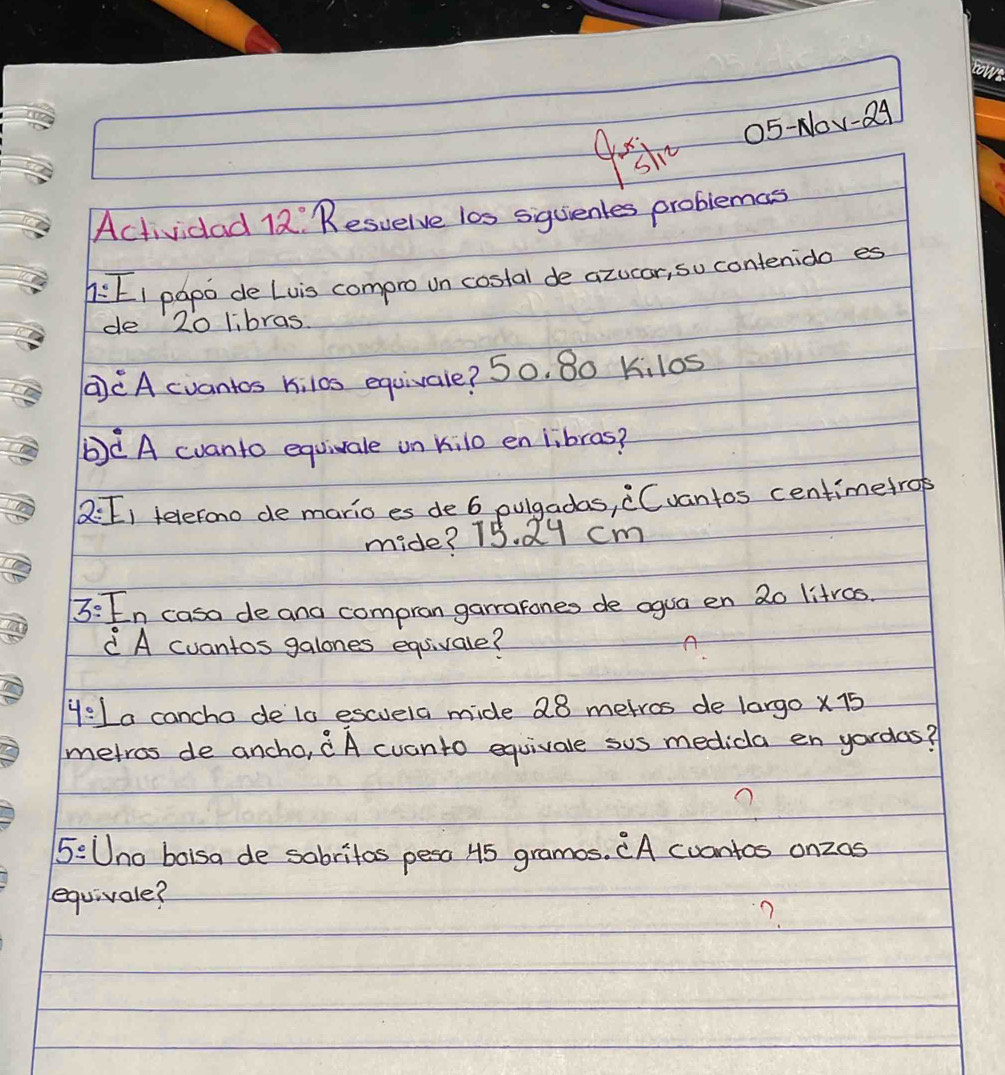 05-Nov-24
Actividad 12: Resuelve los siguientes problemas
1: El papá de Luis compro un costal de azucar, su contenido es
de 20 libras.
a) ¿A cuantos kilos equivale? 50.80 Kilos
b) ¿A cuanto equivale un kilo en libras?
2: El telefono de mario es de 6 pulgadas, ¿Cuantos centimetros
mide? 15.24 cm
3: En casa de ana compran garrafones de agua en 20 litros.
¿A cuantos galones equivale?
4: La cancha de la escuela mide 28 metros de largo x 15
metros de ancho, ¿A cuanto equivale sus medida en yardas?
?
5: Una bolsa de sabritas pesa 45 gramos. ¿A cuantos onzas
equivale?
?